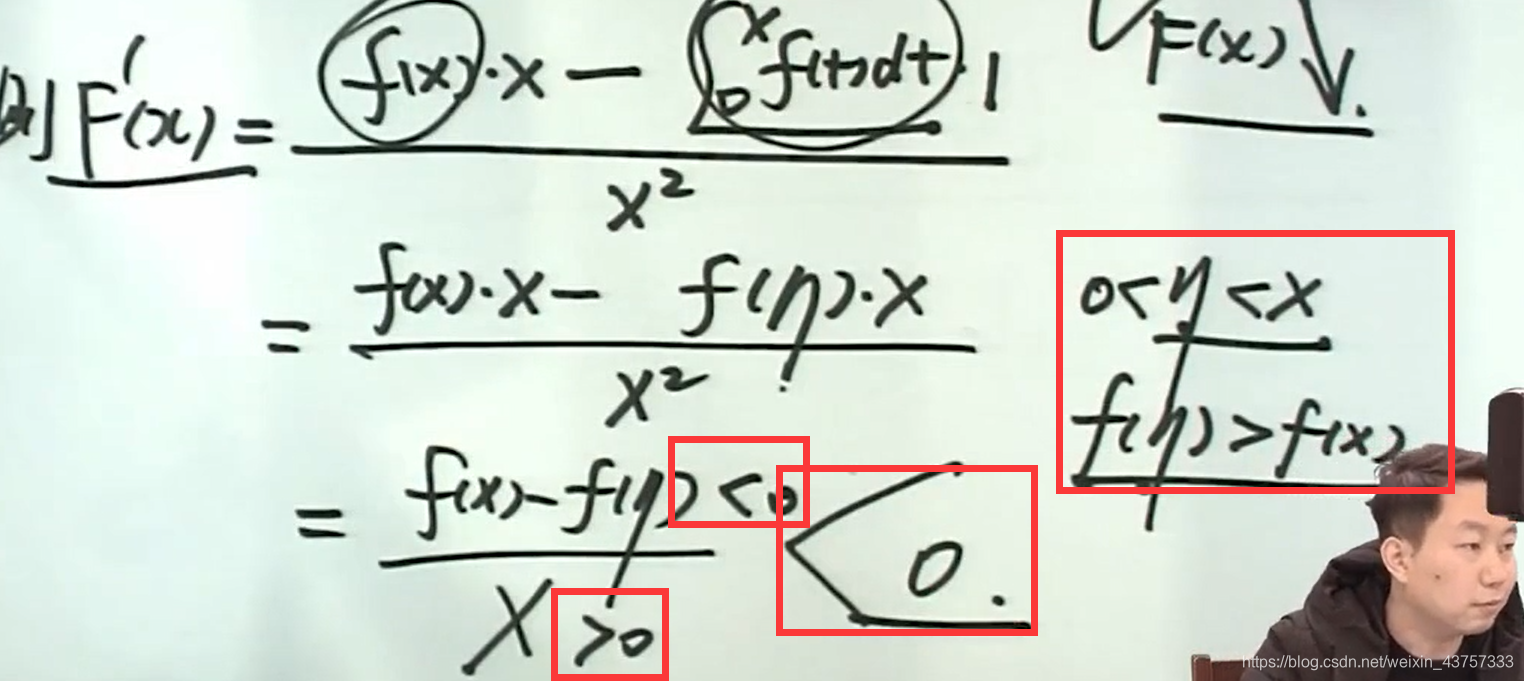 则 F'(x) = \frac{f(x)·x − \int_0^x f(t)dt·1}{x²}
F(x)↘.
= \frac{f(x)·x − f(η)·x}{x²}
0<η<x
f(η)>f(x)
= \frac{f(x)−f(η) <0}{x >0} < 0.
https://blog.csdn.net/weixin_43757333